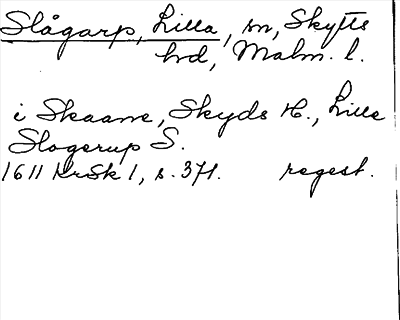 Slågarp, Lilla, sn, Skytts
hd, Malm. l.
i Skaane, Skyds H., Lille
Slogerup S.
1611 KrSk 1, s. 371. regest.